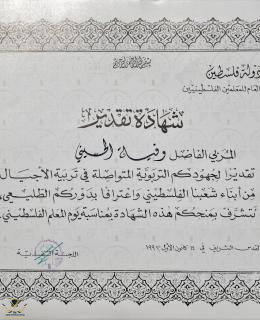 بسم الله الرحمن الرحيم
دولة فلسطين
العام للمعلمين الفلسطينيين
شهادة تقدير
المربي الفاضل
تقديرًا لجهودكم التربوية المتواصلة في تربية الأجيال
من أبناء شعبنا الفلسطيني واعترافًا بدوركم الطليعي،
نتشرف بمنحكم هذه الشهادة بمناسبة يوم المعلم الفلسطيني.
القدس الشريف في كانون الأول
اللجنة التنفيذية